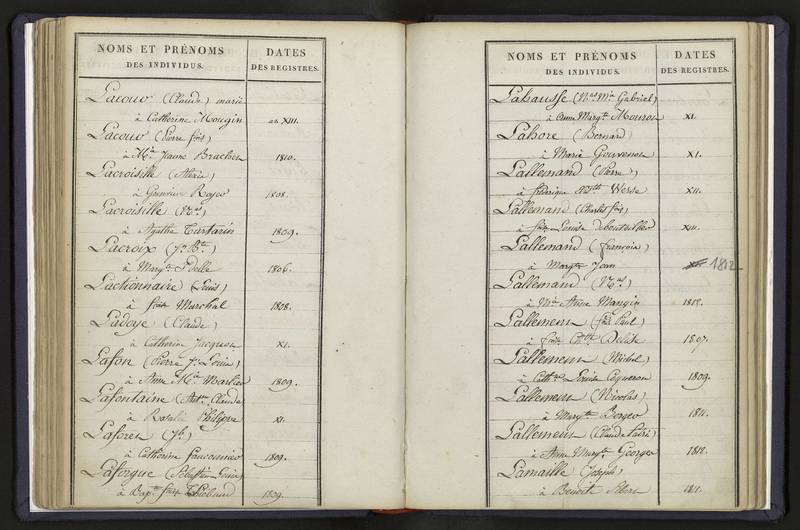 NOMS ET PRÉNOMS DATES
DES INDIVIDUS. DES REGISTRES.
Lacour (Claude) marié
à Catherine Mougin an XIII.
Lacour (Pierre frs)
à Mie Jeanne Bracher 1810.
Lacroisille (Alexis)
à Royer 1808.
Lacroisille (Nas)
à Agathe Tartarin 1809.
Lacroix (Jn Bte)
à Margte Edelle 1806.
Lactionnaire (Louis)
à frse Marchal 1808.
Ladoye (Claude)
à Catherine Jacquot XI.
Lafon (Pierre Jn Louis)
à Anne Mie Martin 1809.
Lafontaine (Claude
à Rosalie Philippe XI.
Laforet (Jh)
à Catherine fauconnier 1809.
Laforgue (Sébastien Louis)
à frse Thiebaud 1809.
NOMS ET PRÉNOMS DATES
DES INDIVIDUS. DES REGISTRES.
Lahausse (Nas Mie Gabriel)
à Anne Margte Mouron XI.
Lahore (Bernard)
à Marie Gouvenon XI.
Lallemand (Pierre)
à frédérique Werse XII.
Lallemand (Charles frs)
à Louise XIII.
Lallemand (françois)
à Margte Jean 1812
Lallemand (Nas)
à Mie Anne Mangin 1812.
Lallement (frs Paul)
à 1807.
Lallement (Michel)
à Cathe Louise Coqueron 1809.
Lallement (Nicolas)
à Margte Borger 1811.
Lallement (Claude
à Anne Margte George 1812.
Lamaille (Joseph)
à Benoit 1811.